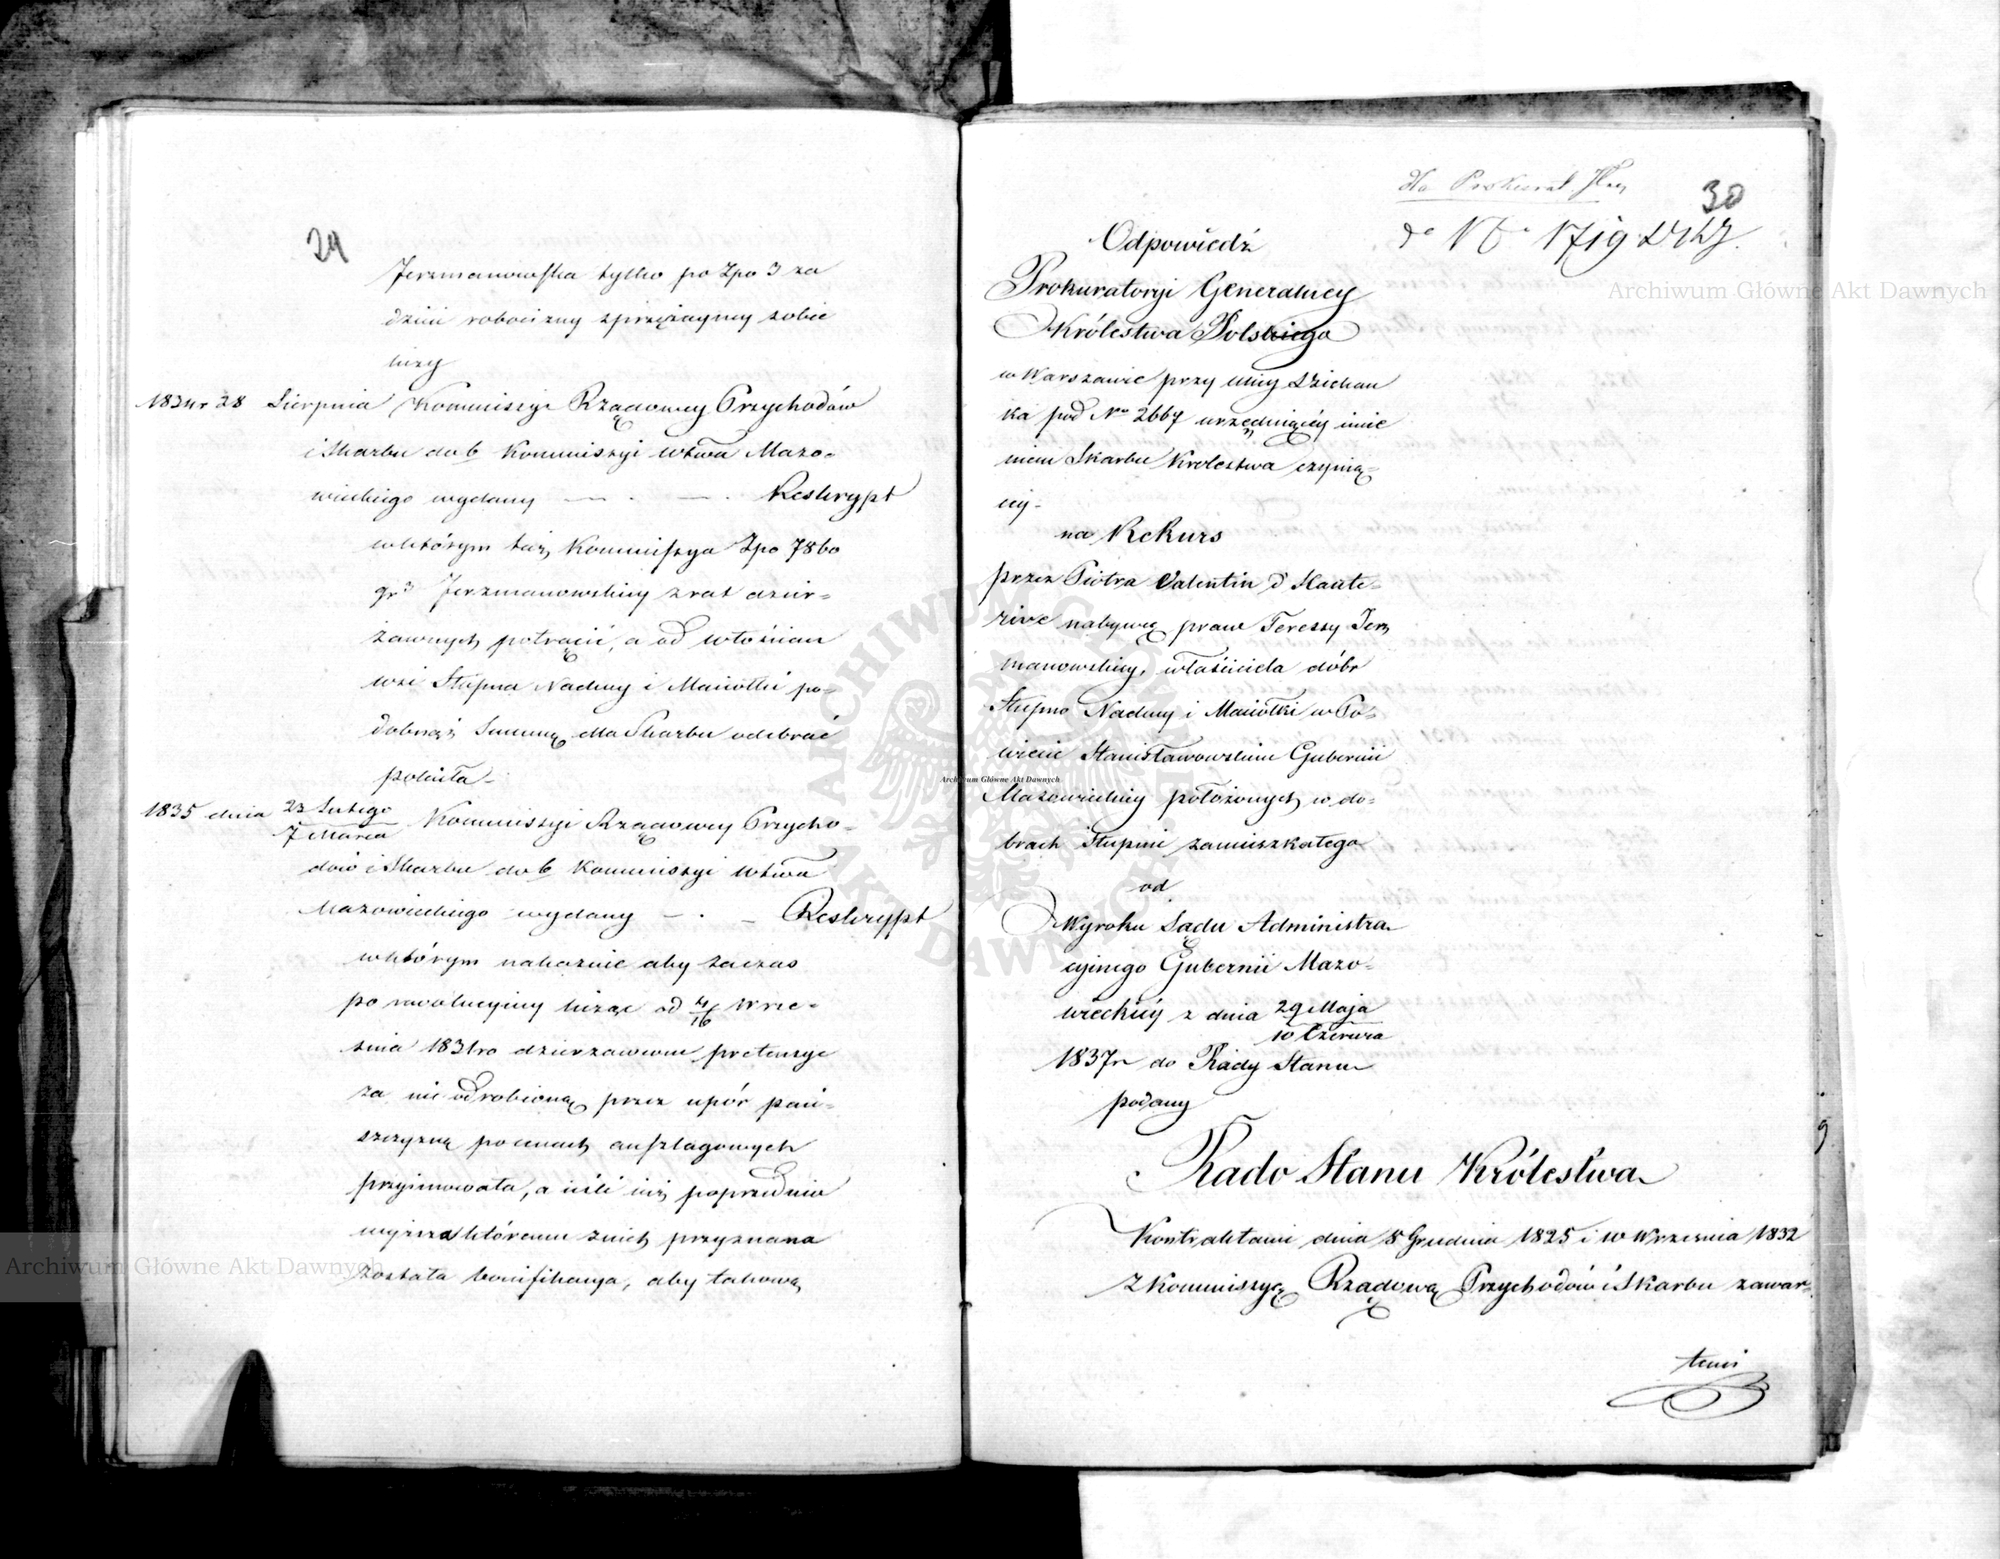 29
Jerzmanowska tylko po Zpo 3 za
dzień robocizny sprzężayney sobie
liczy
1834r 28 Sierpnia Kommissyi Rządowey Przychodów
i Skarbu do b Kommissyi Wtwa Mazo=
wieckiego wydany Reskrypt
w którym taż Kommissya Zpo 7860
gr Jerzmanowskiey z rat dzier=
żawnych potrącić, a od włościan
wsi Słupna Nadmy i Maciołki po=
dobnąż Summę dla Skarbu odebrać
poleciła
1835 dnia 23 Lutego
7 Marca Kommissyi Rządowey Przycho=
dów i Skarbu do b Kommissyi Wtwa
Mazowieckiego wydany Reskrypt
w którym nakazuie aby za czas
po rewolucyiny licząc od 4/16 Wrze=
śnia 1831ro dzierżawcom pretensye
za nie odrobioną przez upór pań=
szczyznę po cenach anszlagowych
przyimowała, a ieśli iuż poprzednio
wyższa któremu z nich przyznana
została bonifikacya, aby takową
30
do No 1719
Odpowiedź
Prokuratoryi Generalney
Królestwa Polskiego
w Warszawie przy ulicy Dziekan
ka pod No 2667 urzęduiącéy imie
niem Skarbu Królestwa czynią=
cey
na Rekurs
przez Piotra Valentin d'Haute=
rive nabywcę praw Teressy Jerz
manowskiey, właściciela dóbr
Słupno Nadmy i Maciołki w Po=
wiecie Stanisławowskim Gubernii
Mazowieckiey położonych w do=
brach Słupnie zamieszkałego
od
Wyroku Sądu Administra
cyinego Gubernii Mazo=
wieckiéy z dnia 29 Maja
10 Czerwca
1837r do Rady Stanu
podany
Rado Stanu Królestwa
Kontraktami dnia 5 Grudnia 1825 i w Wrześniu 1832
z Kommissyą Rządową Przychodów i Skarbu zawar=
temi
Archiwum Główne Akt Dawnych
Archiwum Główne Akt Dawnych
Archiwum Główne Akt Dawnych
ARCHIWUM GŁÓWNE AKT DAWNYCH